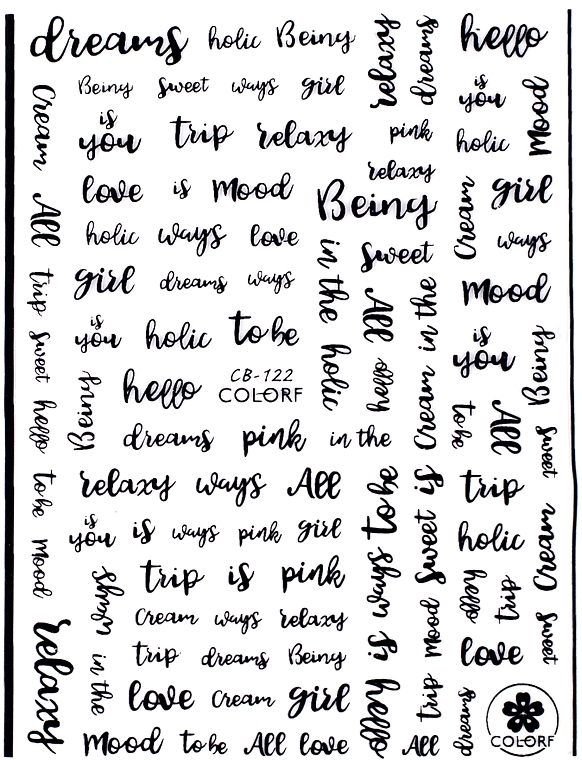 dreams holic Being relaxy dreams hello
Being sweet ways girl is you Mood
Cream is you trip relaxy pink holic
love is Mood relaxy Being Cream girl
All holic ways love in the holic sweet ways
girl dreams ways All Cream in the Mood
trip is you holic to be is you Being
sweet Being hello CB-122 hello to be All
COLORF
hello dreams pink in the sweet
to be relaxy ways All to be is trip
is you is ways pink girl sweet holic Cream
mood trip is pink ways hello trip
ways Cream ways relaxy is mood
relaxy in the trip dreams Being love sweet
love Cream girl hello trip dreams
Mood to be All love All COLORF